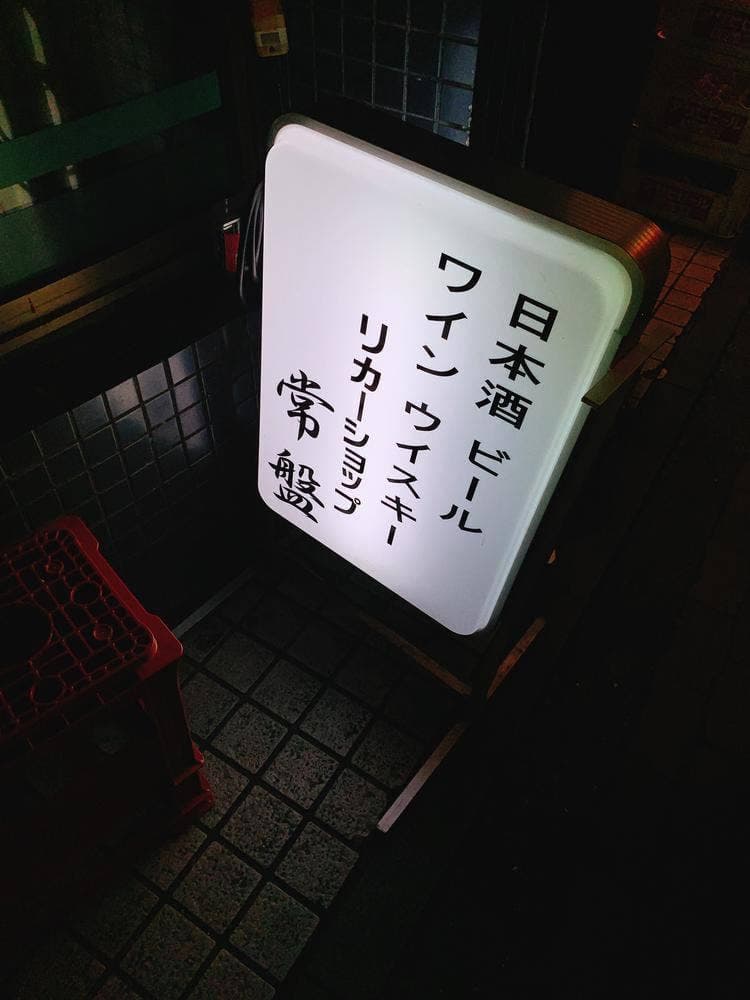 日本酒 ビール
ワイン ウィスキー
リカーショップ
常盤